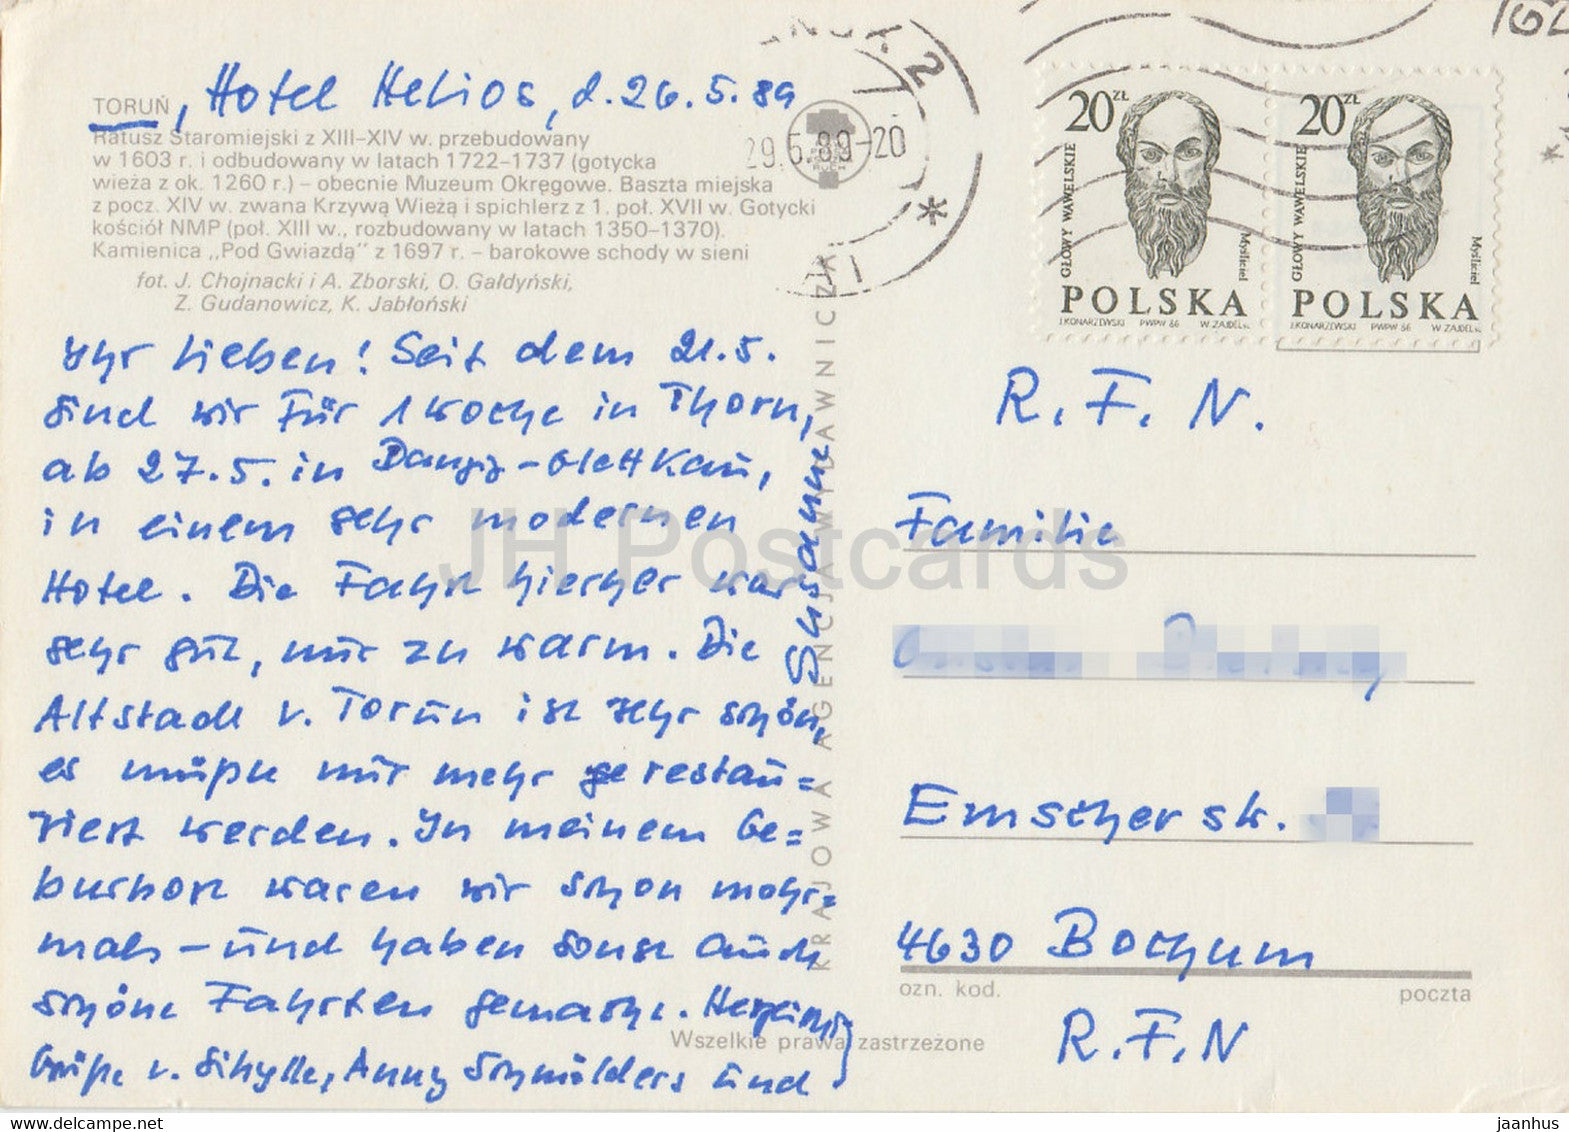 TORUŃ, Hotel Helios, d. 26.5.89
Ratusz Staromiejski z XIII–XIV w. przebudowany
w 1603 r. i odbudowany w latach 1722–1737 (gotycka
wieża z ok. 1260 r.) – obecnie Muzeum Okręgowe. Baszta miejska
z pocz. XIV w. zwana Krzywą Wieżą i spichlerz z 1. poł. XVII w. Gotycki
kościół NMP (poł. XIII w., rozbudowany w latach 1350–1370).
Kamienica „Pod Gwiazdą” z 1697 r. – barokowe schody w sieni
fot. J. Chojnacki i A. Zborski, O. Gałdyński,
Z. Gudanowicz, K. Jabłoński
Ihr Lieben! Seit dem 21.5.
sind wir für 1 Woche in Thorn,
ab 27.5. in Danzig-Glettkau,
in einem sehr modernen
Hotel. Die Fahrt hierher war
sehr gut, nur zu warm. Die
Altstadt v. Torun ist sehr schön,
es müßte nur mehr restau=
riert werden. In meinem Ge=
burtsort waren wir schon mehr=
mals – und haben sonst auch
schöne Fahrten gemacht. Herzliche
Grüße v. Sibylle, Anny Schmölders und
Susanne
KRAJOWA AGENCJA WYDAWNICZA
2
29.5.89-20
20 ZŁ
GŁOWY WAWELSKIE
Myśliciel
POLSKA
J.KONARZEWSKI PWPW 86 W.ZAJDEL sc.
20 ZŁ
GŁOWY WAWELSKIE
Myśliciel
POLSKA
J.KONARZEWSKI PWPW 86 W.ZAJDEL sc.
R.F.N.
Familie
Emscherstr.
4630 Bochum
ozn. kod. poczta
R.F.N
Wszelkie prawa zastrzeżone
JH Postcards
www.delcampe.net
jaanhus